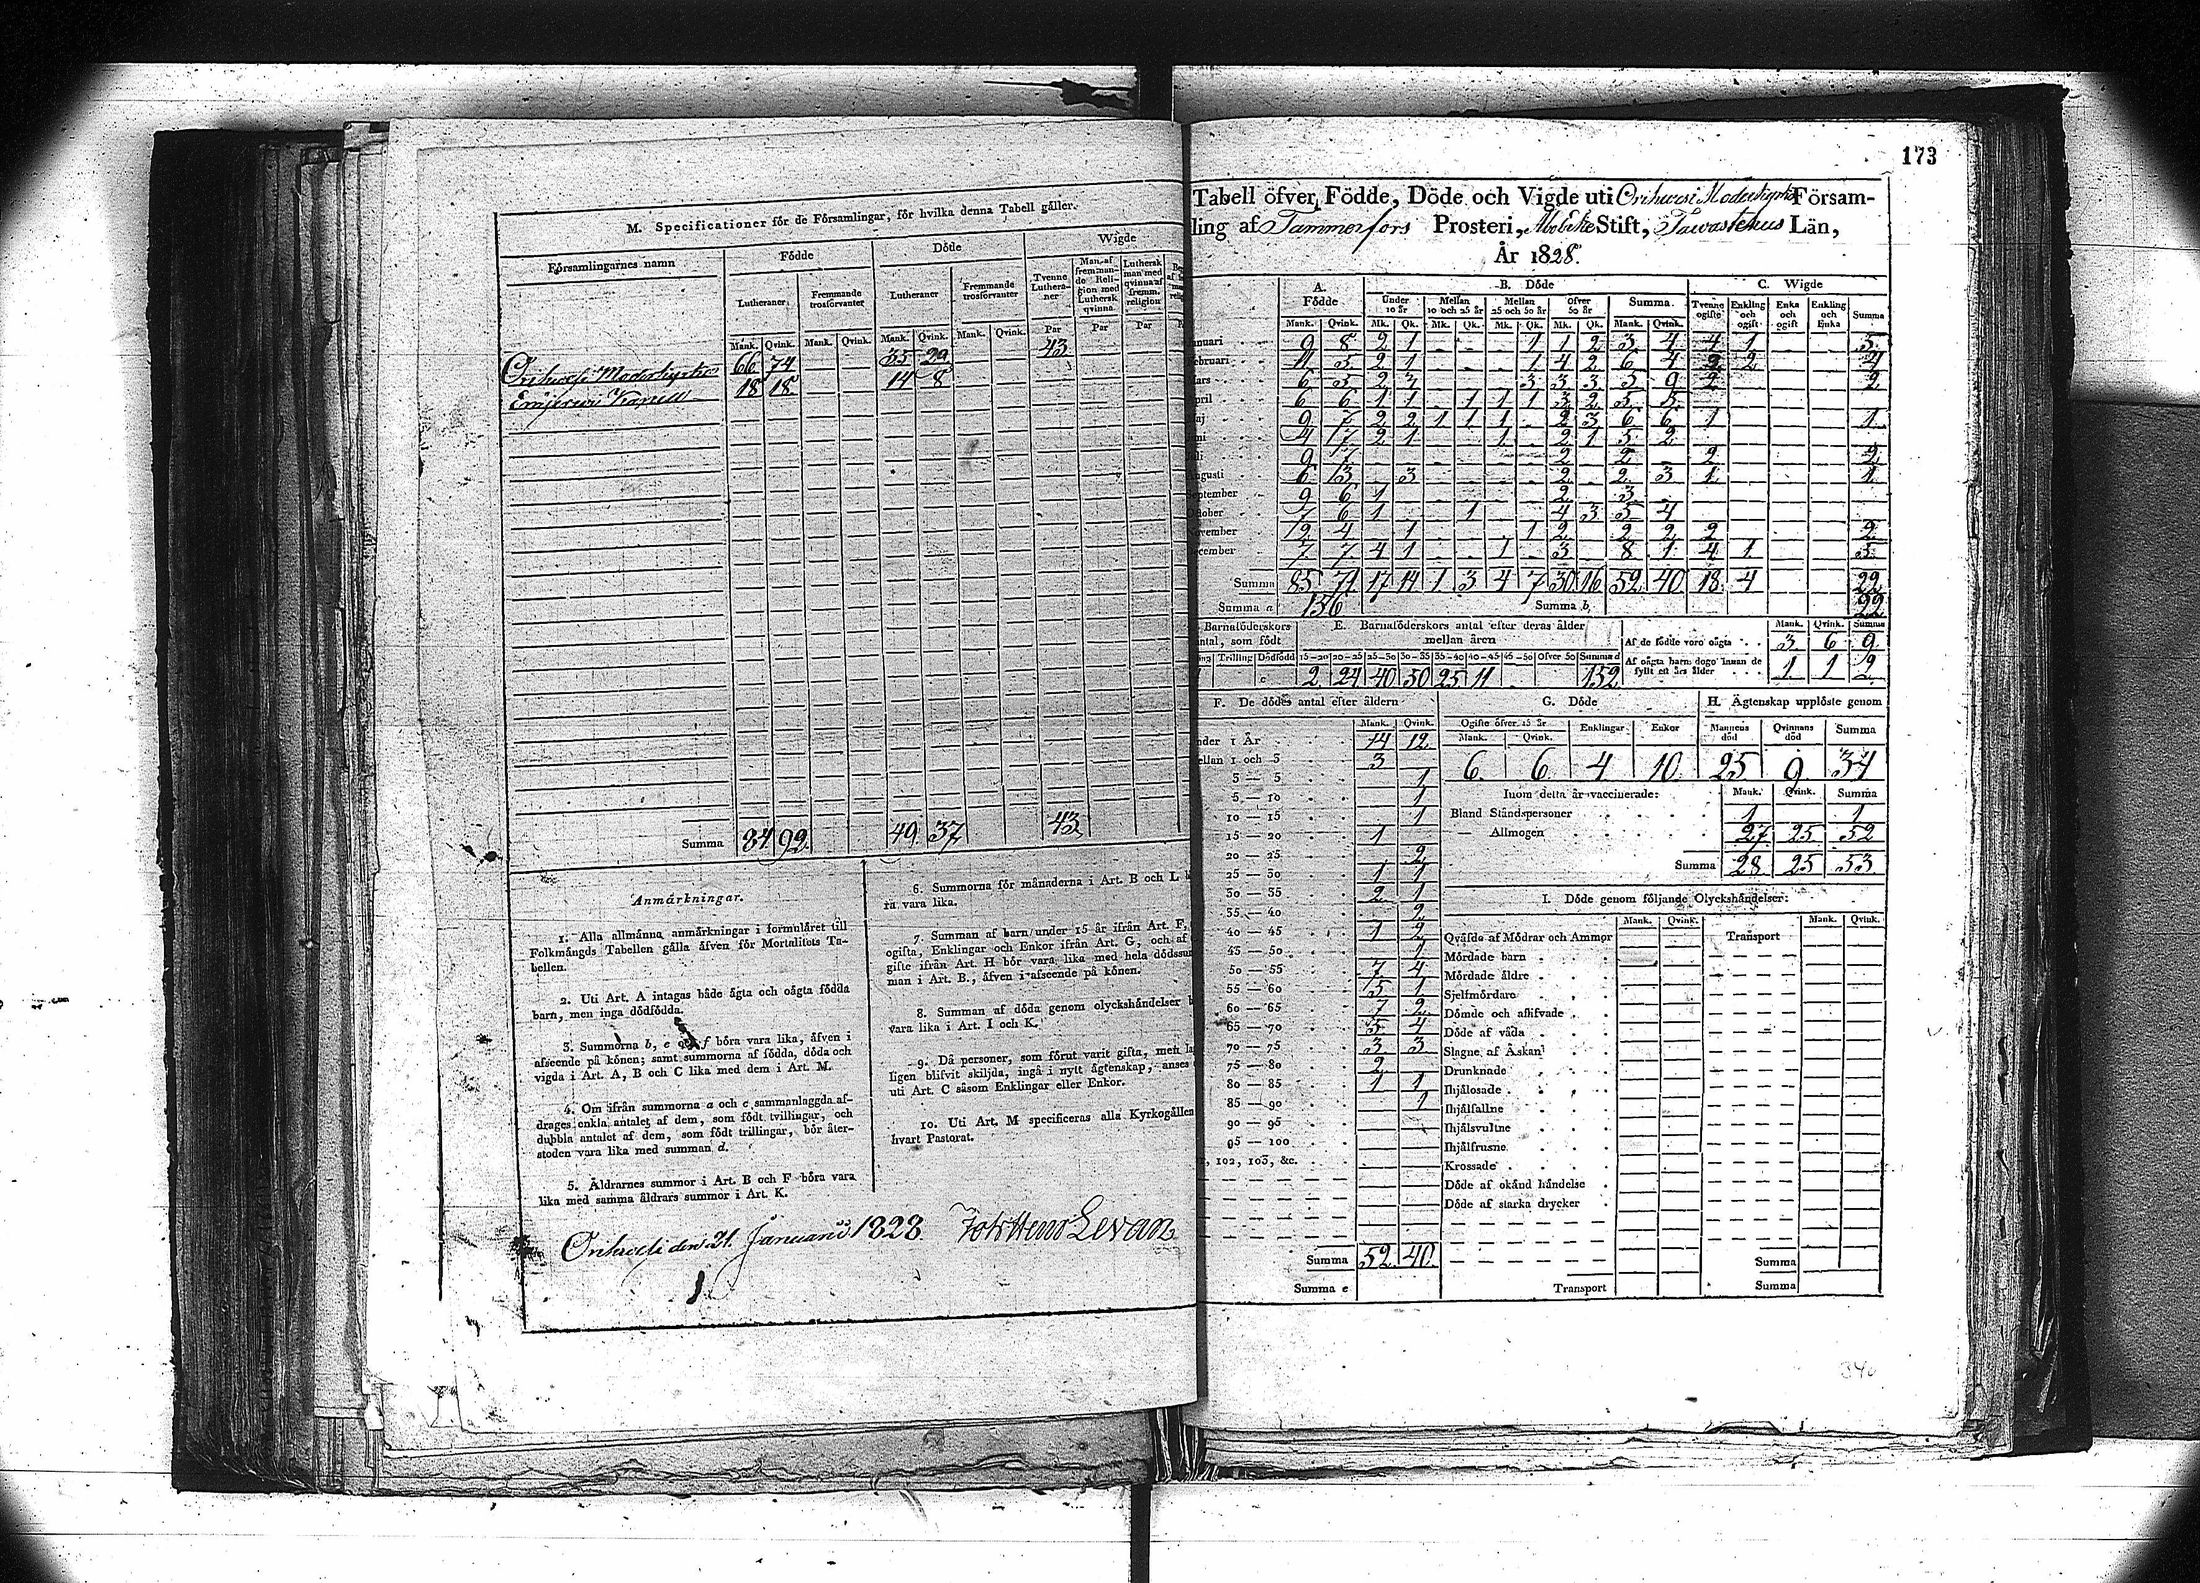 M. Specificationer för de Församlingar, för hvilka denna Tabell gäller.
Församlingarnes namn
Födde
Döde
Wigde
Lutheraner
Fremmande trosförvanter
Lutheraner
Fremmande trosförvanter
Tvenne Lutheraner
Man af fremmande Religion med Luthersk qvinna
Luthersk man med qvinna af fremm. religion
Mank. Qvink. Mank. Qvink. Mank. Qvink. Mank. Qvink. Par Par Par
Orihvesi Moderkyrka 66 74 35 29 43
Eräjervi Kapell 18 18 14 8
Summa 84 92 49 37 43
Anmärkningar.
1. Alla allmänna anmärkningar i formuläret till
Folkmängds Tabellen gälla äfven för Mortalitets Ta-
bellen.
2. Uti Art. A intagas både ägta och oägta födda
barn, men inga dödfödda.
3. Summorna b, e och f böra vara lika, äfven i
afseende på könen; samt summorna af födda, döda och
vigda i Art. A, B och C lika med dem i Art. M.
4. Om ifrån summorna a och c sammanlaggda af-
drages enkla antalet af dem, som födt tvillingar, och
dubbla antalet af dem, som födt trillingar, bör åter-
stoden vara lika med summan d.
5. Äldrarnes summor i Art. B och F böra vara
lika med samma äldrars summor i Art. K.
6. Summorna för månaderna i Art. B och L
ra vara lika.
7. Summan af barn under 15 år ifrån Art. F,
ogifta, Enklingar och Enkor ifrån Art. G, och af
gifte ifrån Art. H bör vara lika med hela dödssum
man i Art. B., äfven i afseende på könen.
8. Summan af döda genom olyckshändelser
vara lika i Art. I och K.
9. Då personer, som förut varit gifta, men
ligen blifvit skiljda, ingå i nytt ägtenskap, anses
uti Art. C såsom Enklingar eller Enkor.
10. Uti Art. M specificeras alla Kyrkogällen
hvart Pastorat.
Orihvesi den 21. Januarii 1828
173
Tabell öfver Födde, Döde och Vigde uti Orihvesi Moderkyrko Försam-
ling af Tammerfors Prosteri, Åbo Erke Stift, Tawastehus Län,
År 1828.
A. Födde
B. Döde
C. Wigde
Under 10 år
Mellan 10 och 25 år
Mellan 25 och 50 år
Öfver 50 år
Summa.
Tvenne ogifte
Enkling och ogift
Enka och ogift
Enkling och Enka
Summa
Mank. Qvink. Mk. Qk. Mk. Qk. Mk. Qk. Mk. Qk. Mank. Qvink.
anuari 9 8 2 1 1 1 2 3 4 4 1 5
ebruari 11 5 2 1 1 4 2 6 4 2 2 4
ars 6 5 2 3 3 3 3 5 9 2 2
pril 6 6 1 1 1 1 1 3 2 5 5
aj 9 7 2 2 1 1 1 2 3 6 6 1 1
ni 4 7 2 1 1 2 1 5 2
li 9 7 2 2 2 2
ugusti 6 13 3 2 2 3 1 1
eptember 9 6 1 2 3
ktober 7 6 1 1 4 3 5 4
ovember 12 4 1 1 2 2 2 2 2
ecember 7 7 4 1 1 3 8 1 4 1 5
Summa 85 71 17 14 1 3 4 7 30 16 52 40 18 4 22
Summa a 156 Summa b, 22
Barnaföderskors
ntal, som födt
Trilling Dödfödd
E. Barnaföderskors antal efter deras ålder
mellan åren
15-20 20-25 25-30 30-35 35-40 40-45 45-50 Öfver 50 Summa d
2 24 40 50 25 11 152
Mank. Qvink. Summa
Af de födde voro oägta 3 6 9
Af oägta barn dogo innan de
fyllt ett års ålder 1 1 2
F. De dödes antal efter åldern
Mank. Qvink.
nder 1 År 14 12
ellan 1 och 3 3
3 — 5 1
5 — 10 1
10 — 15 1
15 — 20 1
20 — 25 2
25 — 30 1 1
30 — 35 2 1
35 — 40 2
40 — 45 1 2
45 — 50 1
50 — 55 7 4
55 — 60 5 1
60 — 65 7 2
65 — 70 5 4
70 — 75 3 3
75 — 80 2
80 — 85 1 1
85 — 90 1
90 — 95
95 — 100
102, 103, &c.
Summa 52 40
Summa e
G. Döde
Ogifte öfver 15 år
Mank. Qvink. Enklingar Enkor
6 6 4 10
H. Ägtenskap upplöste genom
Mannens död
Qvinnans död
Summa
25 9 34
Inom detta år vaccinerade: Mank. Qvink. Summa
Bland Ståndspersoner 1 1
— Allmogen 27 25 52
Summa 28 25 53
I. Döde genom följande Olyckshändelser:
Mank. Qvink. Mank. Qvink.
Qväfde af Mödrar och Ammor
Transport
Mördade barn
Mördade äldre
Sjelfmördare
Dömde och aflifvade
Döde af våda
Slagne af Åskan
Drunknade
Ihjälosade
Ihjälfallne
Ihjälsvultne
Ihjälfrusne
Krossade
Döde af okänd händelse
Döde af starka drycker
Summa
Transport
Summa